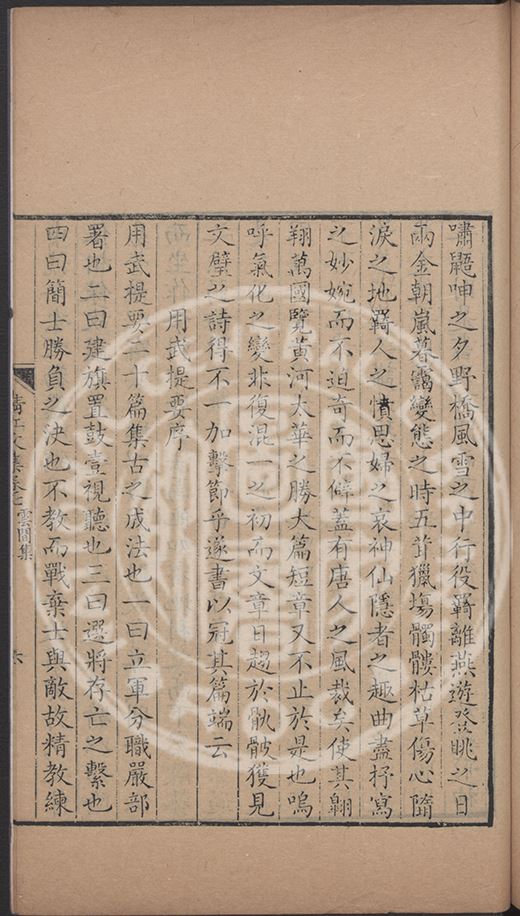 嘯鼯呻之夕野橋風雪之中行役羇離燕遊登眺之日
兩金朝嵐暮靄變態之時五茸獵場髑髏枯草傷心隕
淚之地羇人之憤思婦之哀神仙隱者之趣曲盡抒寫
之妙婉而不迫奇而不僻蓋有唐人之風裁矣使其翱
翔萬國覽黃河太華之勝大篇短章又不止於是也嗚
呼氣化之變非復混一之初而文章日趨於骫骳獲見
文璧之詩得不一加擊節乎遂書以冠其篇端云
用武提要序
用武提要二十篇集古之成法也一曰立軍分職嚴部
署也二曰建旗置鼓壹視聽也三曰選將存亡之繫也
四曰簡士勝負之決也不教而戰棄士與敵故精教練
清江文集卷七 雲間集
六